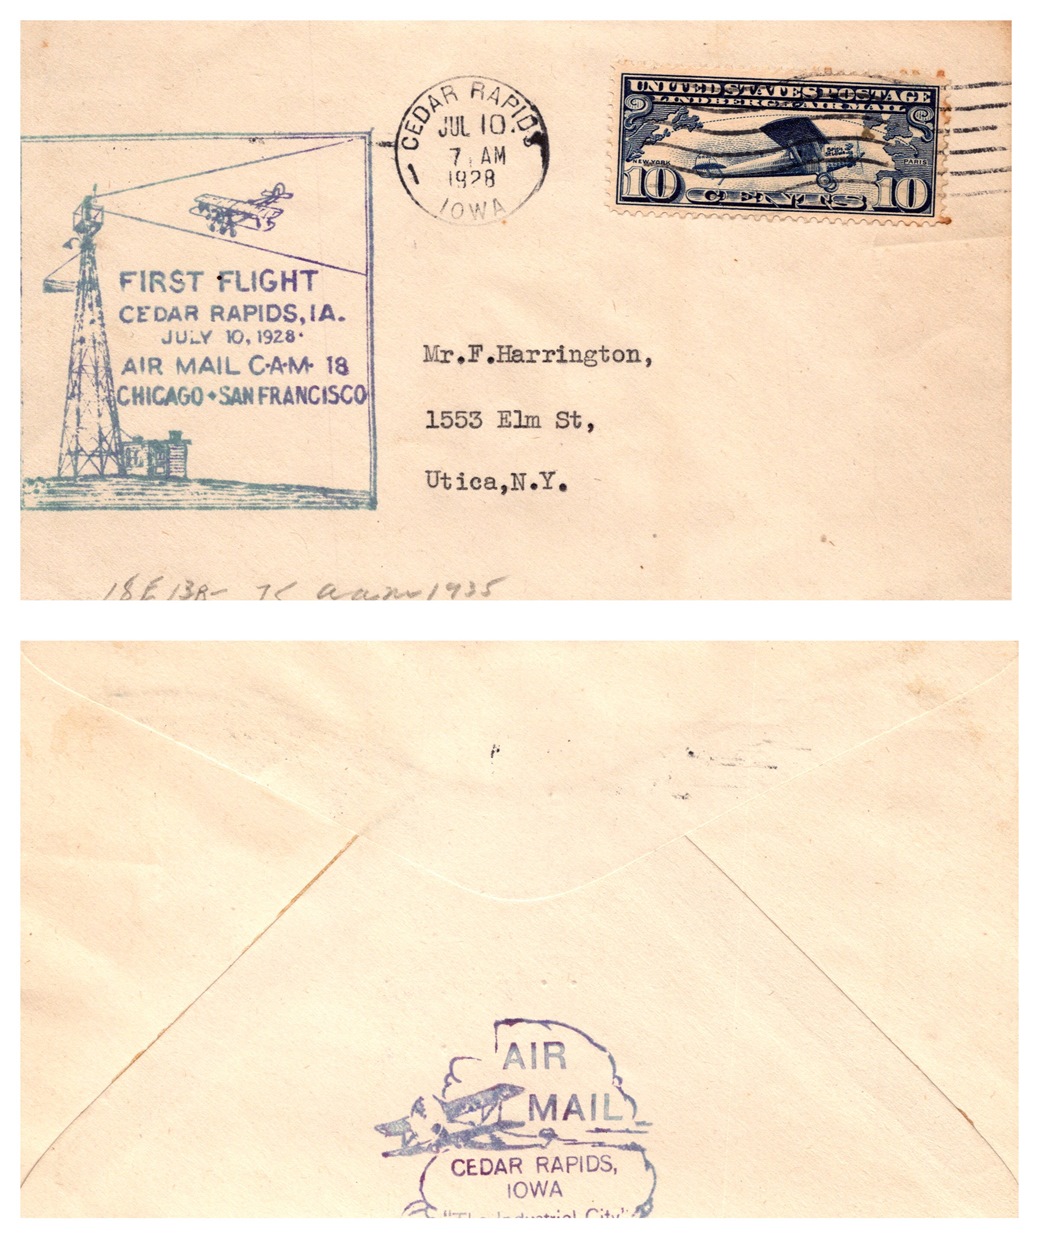 CEDAR RAPIDS
JUL 10.
7 AM
1928
IOWA
UNITED STATES POSTAGE
LINDBERGH AIR MAIL
NEW YORK
PARIS
10 CENTS 10
FIRST FLIGHT
CEDAR RAPIDS, IA.
JULY 10, 1928.
AIR MAIL C.A.M. 18
CHICAGO SAN FRANCISCO
Mr.F.Harrington,
1553 Elm St,
Utica,N.Y.
1935
AIR
MAIL
CEDAR RAPIDS,
IOWA
"The Industrial City"